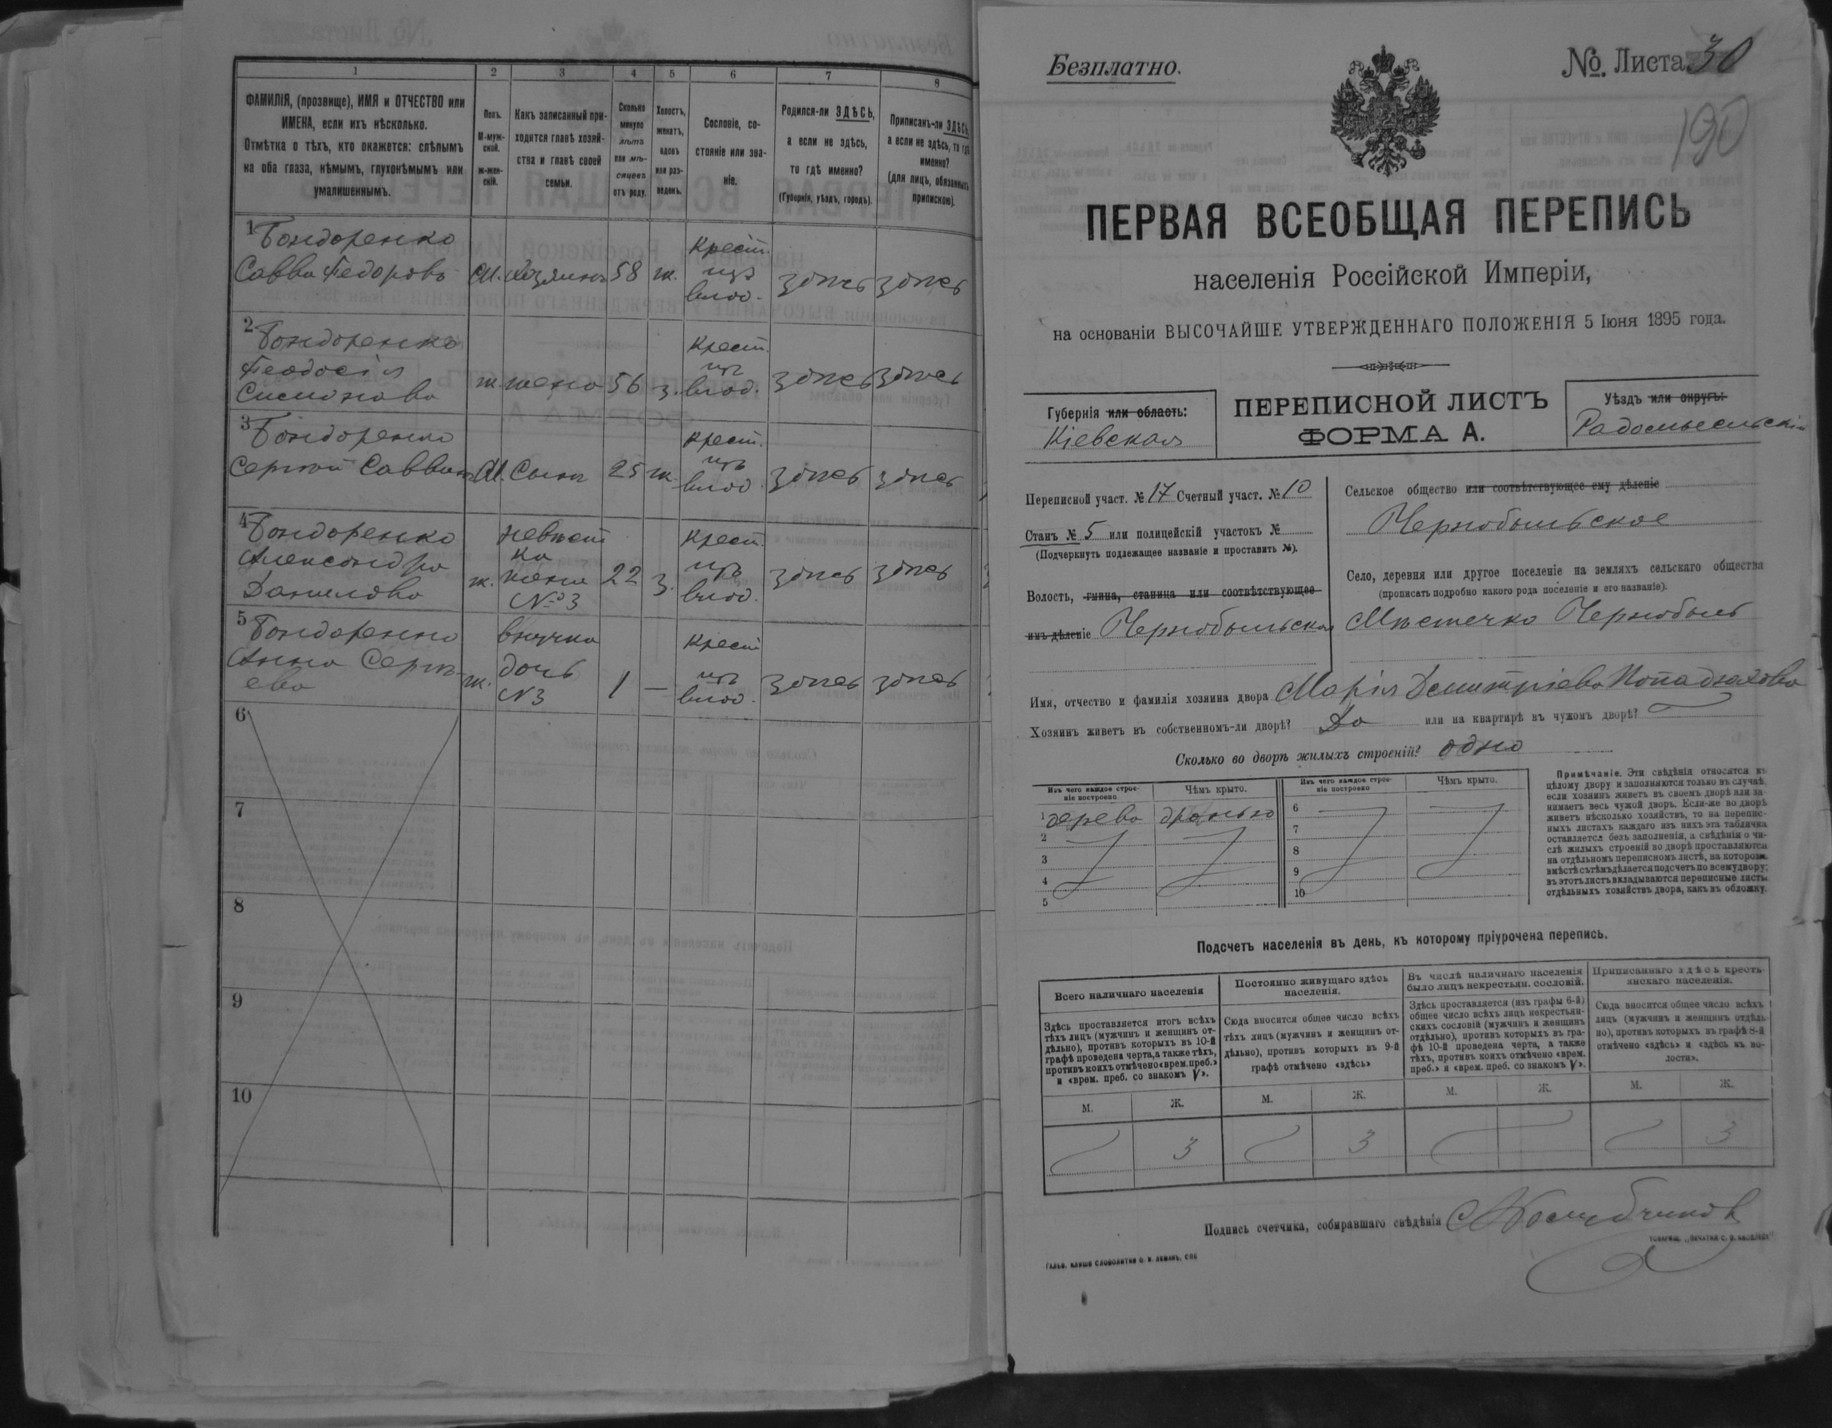 1 2 3 4 5 6 7 8
ФАМИЛІЯ, (прозвище), ИМЯ и ОТЧЕСТВО или
ИМЕНА, если ихъ нѣсколько.
Отмѣтка о тѣхъ, кто окажется: слѣпымъ
на оба глаза, нѣмымъ, глухонѣмымъ или
умалишеннымъ.
Полъ.
М-муж-
ской.
Ж-жен-
скій.
Какъ записанный при-
ходится главѣ хозяй-
ства и главѣ своей
семьи.
Сколько
минуло
лѣтъ
или мѣ-
сяцевъ
отъ роду.
Холостъ,
женатъ,
вдовъ
или раз-
веденъ.
Сословіе, со-
стояніе или зва-
ніе.
Родился-ли ЗДѢСЬ,
а если не здѣсь,
то гдѣ именно?
(Губернія, уѣздъ, городъ).
Приписанъ-ли ЗДѢСЬ,
а если не здѣсь, то гдѣ
именно?
(для лицъ, обязанныхъ
припискою).
1 Бондоренко
Савва Федоровъ М. Хозяинъ 58 ж. Крест. изъ влад. здѣсь здѣсь
2 Бондоренко
Феодосія
Симонова ж. жена 56 з. Крест. изъ влад. здѣсь здѣсь
3 Бондоренко
Сергѣй Саввинъ М. Сынъ 25 ж. Крест. изъ влад. здѣсь здѣсь
4 Бондоренко
Александра
Данилова ж. невѣст ка жена №3 22 з. Крест. изъ влад. здѣсь здѣсь
5 Бондоренко
Анна Сергѣ-
ева ж. внучка дочь №3 1 — Крест изъ влад. здѣсь здѣсь
6
7
8
9
10
Безплатно.
№. Листа 30
190
ПЕРВАЯ ВСЕОБЩАЯ ПЕРЕПИСЬ
населенія Россійской Имперіи,
на основаніи ВЫСОЧАЙШЕ УТВЕРЖДЕННАГО ПОЛОЖЕНІЯ 5 Іюня 1895 года.
Губернія или область:
Кіевская
ПЕРЕПИСНОЙ ЛИСТЪ
ФОРМА А.
Уѣздъ или округъ:
Радомысльскій
Переписной участ. № 17 Счетный участ. № 10
Станъ № 5 или полицейскій участокъ №
(Подчеркнуть подлежащее названіе и проставить №).
Волость, гмина, станица или соотвѣтствующее
имъ дѣленіе Чернобыльская
Сельское общество или соотвѣтствующее ему дѣленіе
Чернобыльское
Село, деревня или другое поселеніе на земляхъ сельскаго общества
(прописать подробно какого рода поселеніе и его названіе).
Мѣстечко Чернобыль
Имя, отчество и фамилія хозяина двора Марія Дмитріева
Хозяинъ живетъ въ собственномъ-ли дворѣ? Да или на квартирѣ въ чужомъ дворѣ?
Сколько во дворѣ жилыхъ строеній? одно
Изъ чего каждое строе-
ніе построено
Чѣмъ крыто.
Изъ чего каждое строе-
ніе построено
Чѣмъ крыто.
1 дерево дранью
2
3
4
5
6
7
8
9
10
Примѣчаніе. Эти свѣдѣнія относятся къ
цѣлому двору и заполняются только въ случаѣ,
если хозяинъ живетъ въ своемъ дворѣ или за-
нимаетъ весь чужой дворъ. Если-же во дворѣ
живетъ нѣсколько хозяйствъ, то на перепис-
ныхъ листахъ каждаго изъ нихъ эта табличка
оставляется безъ заполненія, а свѣдѣнія о чи-
слѣ жилыхъ строеній во дворѣ проставляются
на отдѣльномъ переписномъ листѣ, на которомъ
вмѣстѣ съ тѣмъ дѣлается подсчетъ по всему двору;
въ этотъ листъ вкладываются переписные листы
отдѣльныхъ хозяйствъ двора, какъ въ обложку.
Подсчетъ населенія въ день, къ которому пріурочена перепись.
Всего наличнаго населенія
Здѣсь проставляется итогъ всѣхъ
тѣхъ лицъ (мужчинъ и женщинъ от-
дѣльно), противъ которыхъ въ 10-й
графѣ проведена черта, а также тѣхъ,
противъ коихъ отмѣчено «врем. преб.»
и «врем. преб. со знакомъ V».
Постоянно живущаго здѣсь
населенія.
Сюда вносится общее число всѣхъ
тѣхъ лицъ (мужчинъ и женщинъ от-
дѣльно), противъ которыхъ въ 9-й
графѣ отмѣчено «здѣсь»
Въ числѣ наличнаго населенія
было лицъ некрестьян. сословій.
Здѣсь проставляется (изъ графы 6-й)
общее число всѣхъ лицъ некрестьян-
скихъ сословій (мужчинъ и женщинъ
отдѣльно), противъ которыхъ въ гра-
фѣ 10-й проведена черта, а также
тѣхъ, противъ коихъ отмѣчено «врем.
преб.» и «врем. преб. со знакомъ V».
Приписаннаго здѣсь кресть-
янскаго населенія.
Сюда вносится общее число всѣхъ
лицъ (мужчинъ и женщинъ отдѣль-
но), противъ которыхъ въ графѣ 8-й
отмѣчено «здѣсь» и «здѣсь въ во-
лости».
М. Ж. М. Ж. М. Ж. М. Ж.
3 3 3
Подпись счетчика, собиравшаго свѣдѣнія
ГАЛЬВ. КЛИШЕ СЛОВОЛИТНИ О. И. ЛЕМАНЪ, СПБ